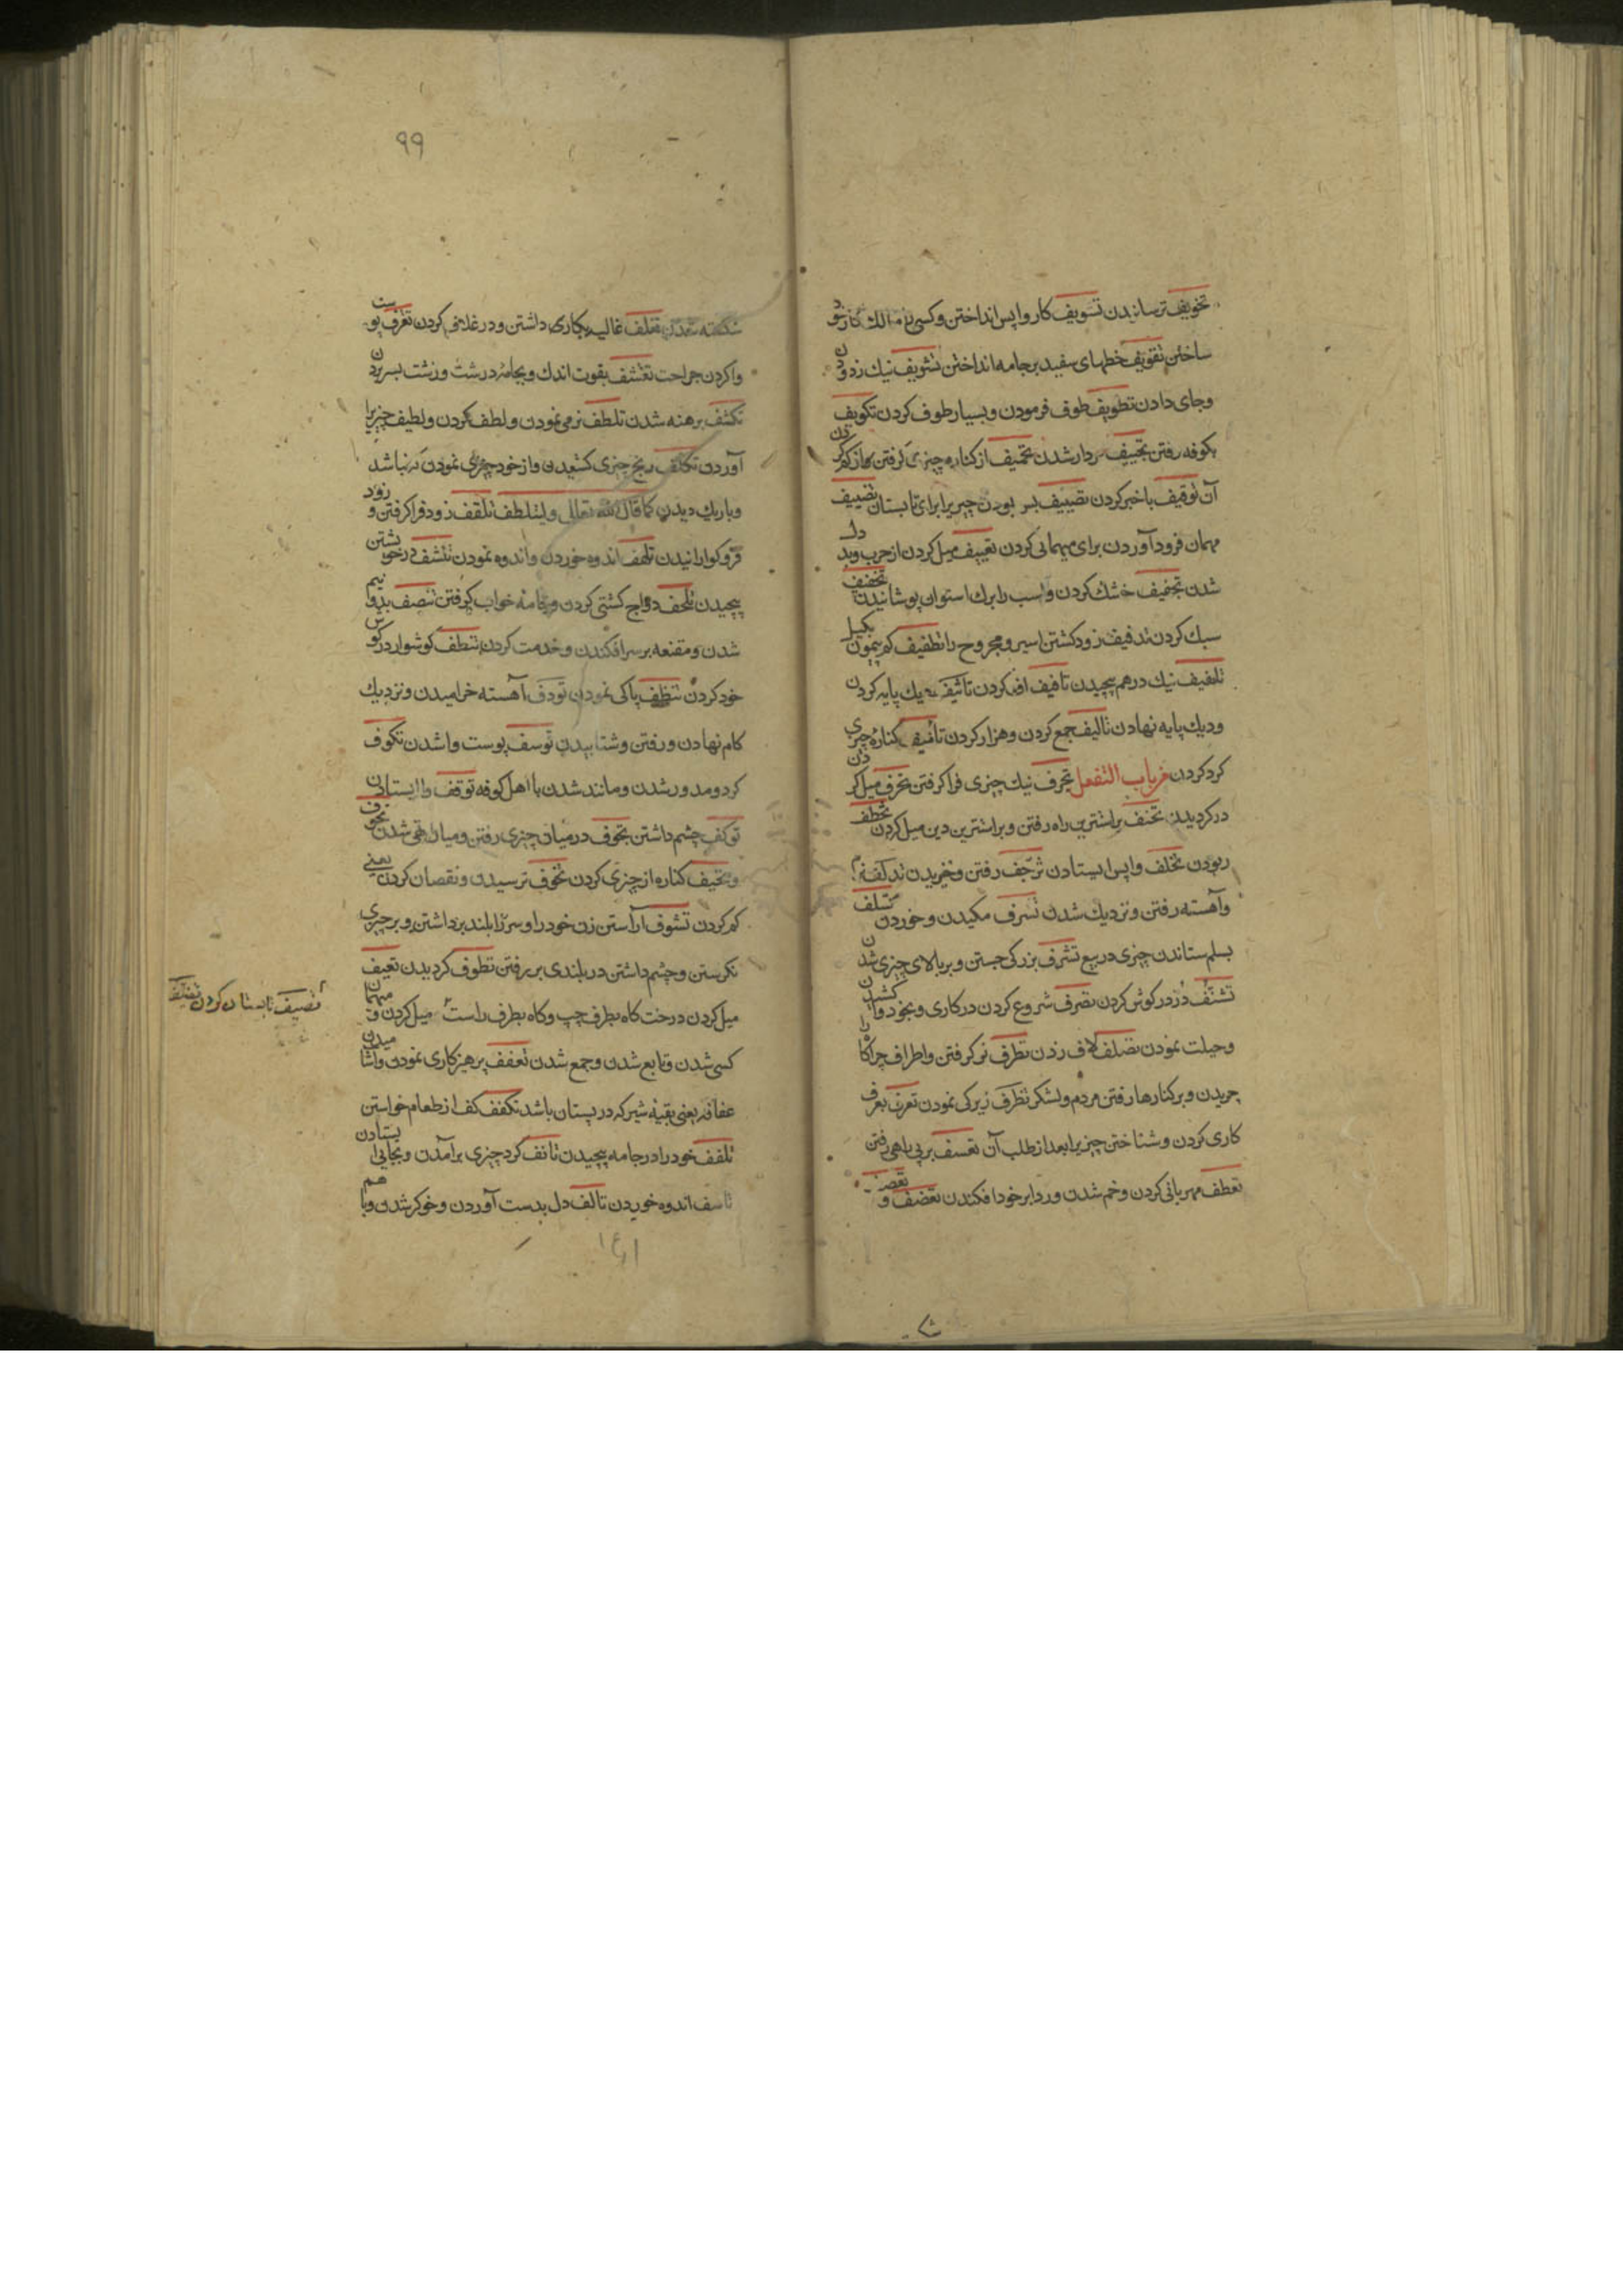 تخویف ترسانیدن تسویف کار واپس انداختن و کسی را مالک کار خود
ساختن تفویف خطهای سفید بر جامه انداختن تشویف نیک زدودن
و جای دادن تطویف طوف فرمودن و بسیار طوف کردن تکویف
بکوفه رفتن تجییف مردار شدن تحییف از کناره چیزی گرفتن
آن توقیف با خبر کردن تصییف بس بودن چیزیرا برای تابستان تضییف
مهمان فرود آوردن برای مهمانی کردن تعییف میل کردن از حرب وبددل
شدن تجفیف خشک کردن و اسب را برک استوان پوشانیدن تخفیف
سبک کردن تدفیف زود کشتن اسیر و مجروح را تطفیف کم پیمودن بکیل
تلفیف نیک درهم پیچیدن تافیف اف کردن تاثیف دیک پایه کردن
و دیک پایه نهادن تالیف جمع کردن و هزار کردن تأنیف کناره چیزی
کرد کردن من باب التفعل تجرف نیک چیزی فرا کرفتن تحرف میل کردن
در کردیدن تحنف براستترین راه رفتن و براستترین دین میل کردن تخطف
ربودن تخلف واپس ایستادن تزحف رفتن و خزیدن تدلف
و آهسته رفتن و نزدیک شدن تسرف مکیدن و خوردن تسلف
بسلم ستاندن چیزی در بیع تشرف بزرکی جستن و بر بالای چیزی شدن
تشنف دُر در کوش کردن تصرف شروع کردن در کاری و بخود واکشیدن
و حیلت نمودن تصلف لاف زدن تطرف نو کرفتن و اطراف چراکاه را
چریدن و بر کنارها رفتن مردم و لشکر تظرف زیرکی نمودن تعرف بعرف
کاری کردن و شناختن چیزیرا بعد از طلب آن تعسف بر بی راهی رفتن
تعطف مهربانی کردن و خم شدن و ردا بر خود افکندن تعضف و تقصف
۹۹
شکسته شدن تغلف غالیه بکاری داشتن و در غلاف کردن تقرف پوست
وا کردن جراحت تقشف بقوت اندک و بجامه درشت و زشت بسر بردن
تکشف برهنه شدن تلطف نرمی نمودن و لطف کردن و لطیف چیزیرا
آوردن تکلف رنج چیزی کشیدن و از خود چیزی نمودن که نباشد
و باریک دیدن کما قال الله تعالی ولیتلطف تلقف زود فرا کرفتن و زود
فرو کوارانیدن تلهف اندوه خوردن و اندوه نمودن تنشف در خویشتن
پیچیدن تلحف دواج کشتی کردن و جامه خواب کرفتن تنصف بدو نیم
شدن و مقنعه بر سر افکندن و خدمت کردن تنطف کوشوار در کوش
خود کردن تنظف پاکی نمودن تودف آهسته خرامیدن و نزدیک
کام نهادن و رفتن و شتابیدن توسف پوست وا شدن تکوف
کرد و مدور شدن و مانند شدن با اهل کوفه توقف وا ایستادن
توکف چشم داشتن تجوف در میان چیزی رفتن و میان تهی شدن تحوف
و تحیف کناره از چیزی کردن تخوف ترسیدن و نقصان کردن یعنی
کم کردن تشوف آراستن زن خود را و سر را بلند برداشتن و بر چیزی
نکرستن و چشم داشتن در بلندی بر رفتن تطوف کردیدن تعیف
میل کردن درخت کاه بطرف چپ و کاه بطرف راست میل کردن و مهمان
کسی شدن و تابع شدن و جمع شدن تعفف پرهیزکاری نمودن و آشامیدن
عفافه یعنی بقیه شیر که در پستان باشد تکفف کف از طعام خواستن
تلفف خود را در جامه پیچیدن تانف کرد چیزی بر آمدن و بجایی ایستادن
تاسف اندوه خوردن تالف دل بدست آوردن و خوکر شدن و با هم
تصیف تابستان کردن